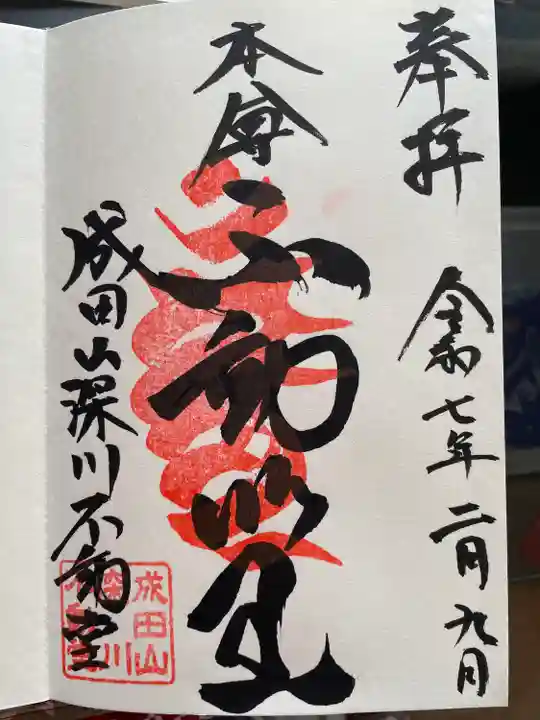 奉拝
令和七年二月九日
本尊
不動明王
成田山深川不動堂
成田山
深川